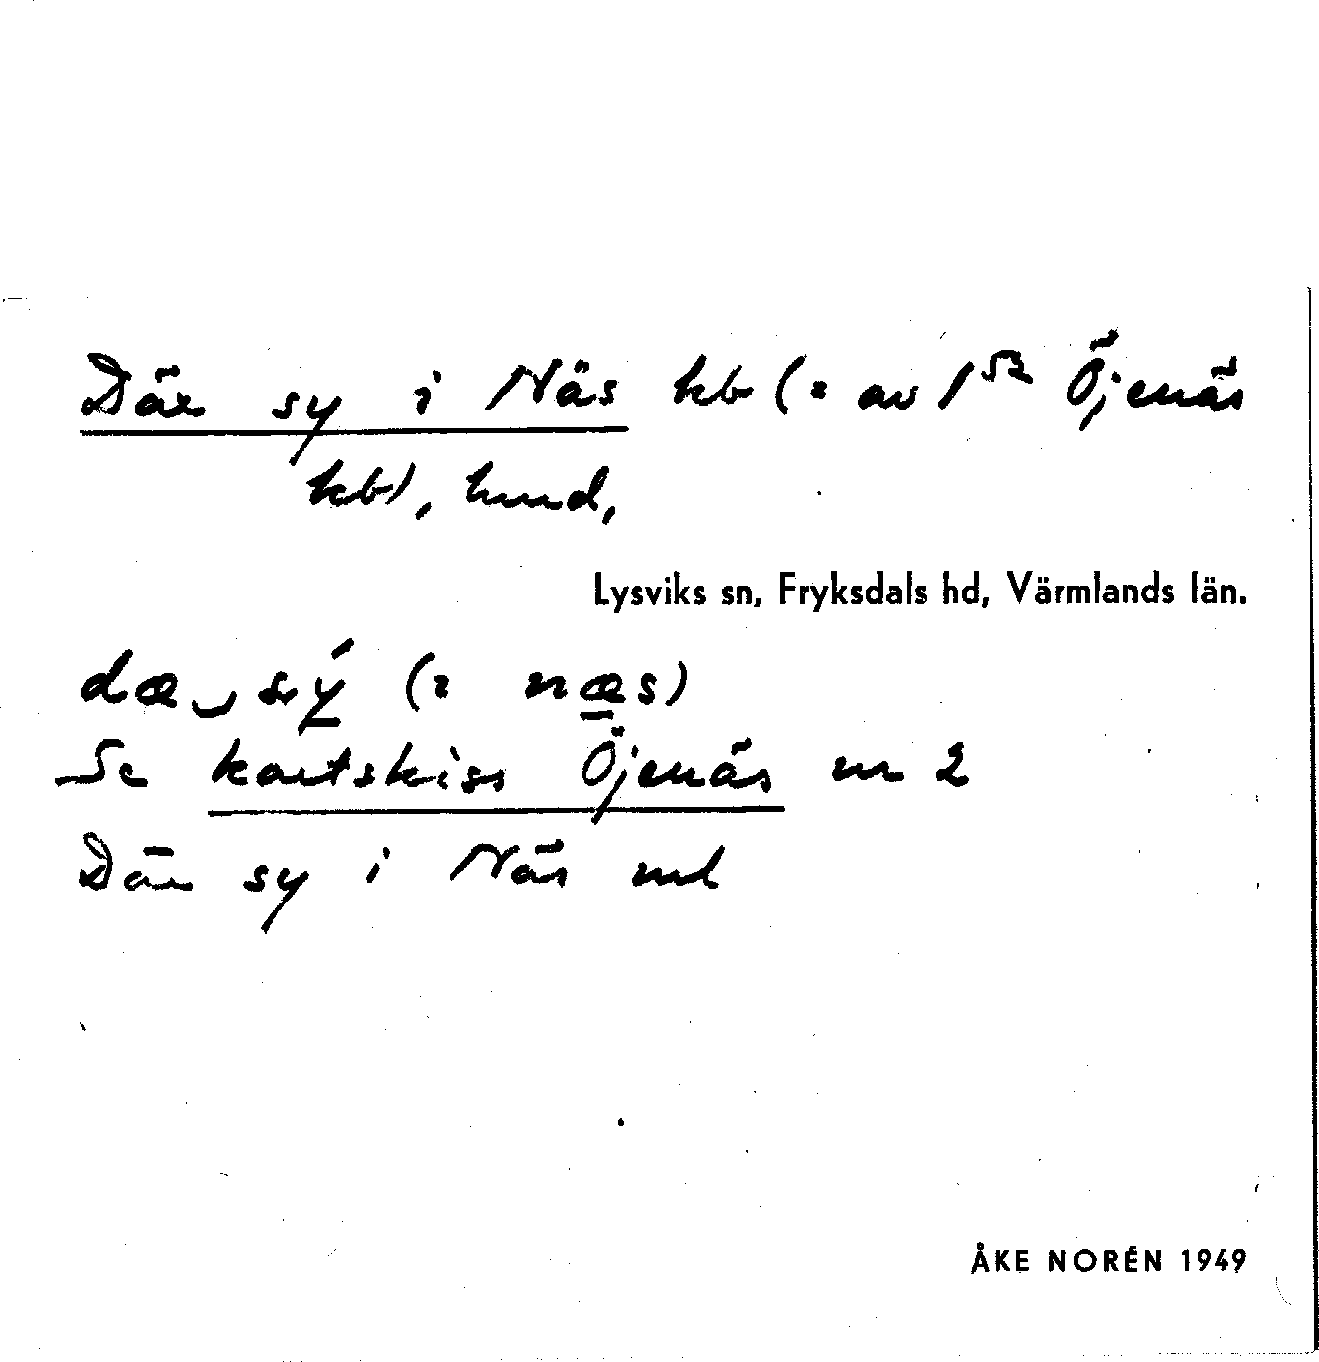 Där sy i Näs kb (= av 1⁵² Öjenäs
kb), hmd,
Lysviks sn, Fryksdals hd, Värmlands län.
dæ‿sý (= næs)
Se kartskiss Öjenäs nr 2
Där sy i Näs ml
ÅKE NORÉN 1949